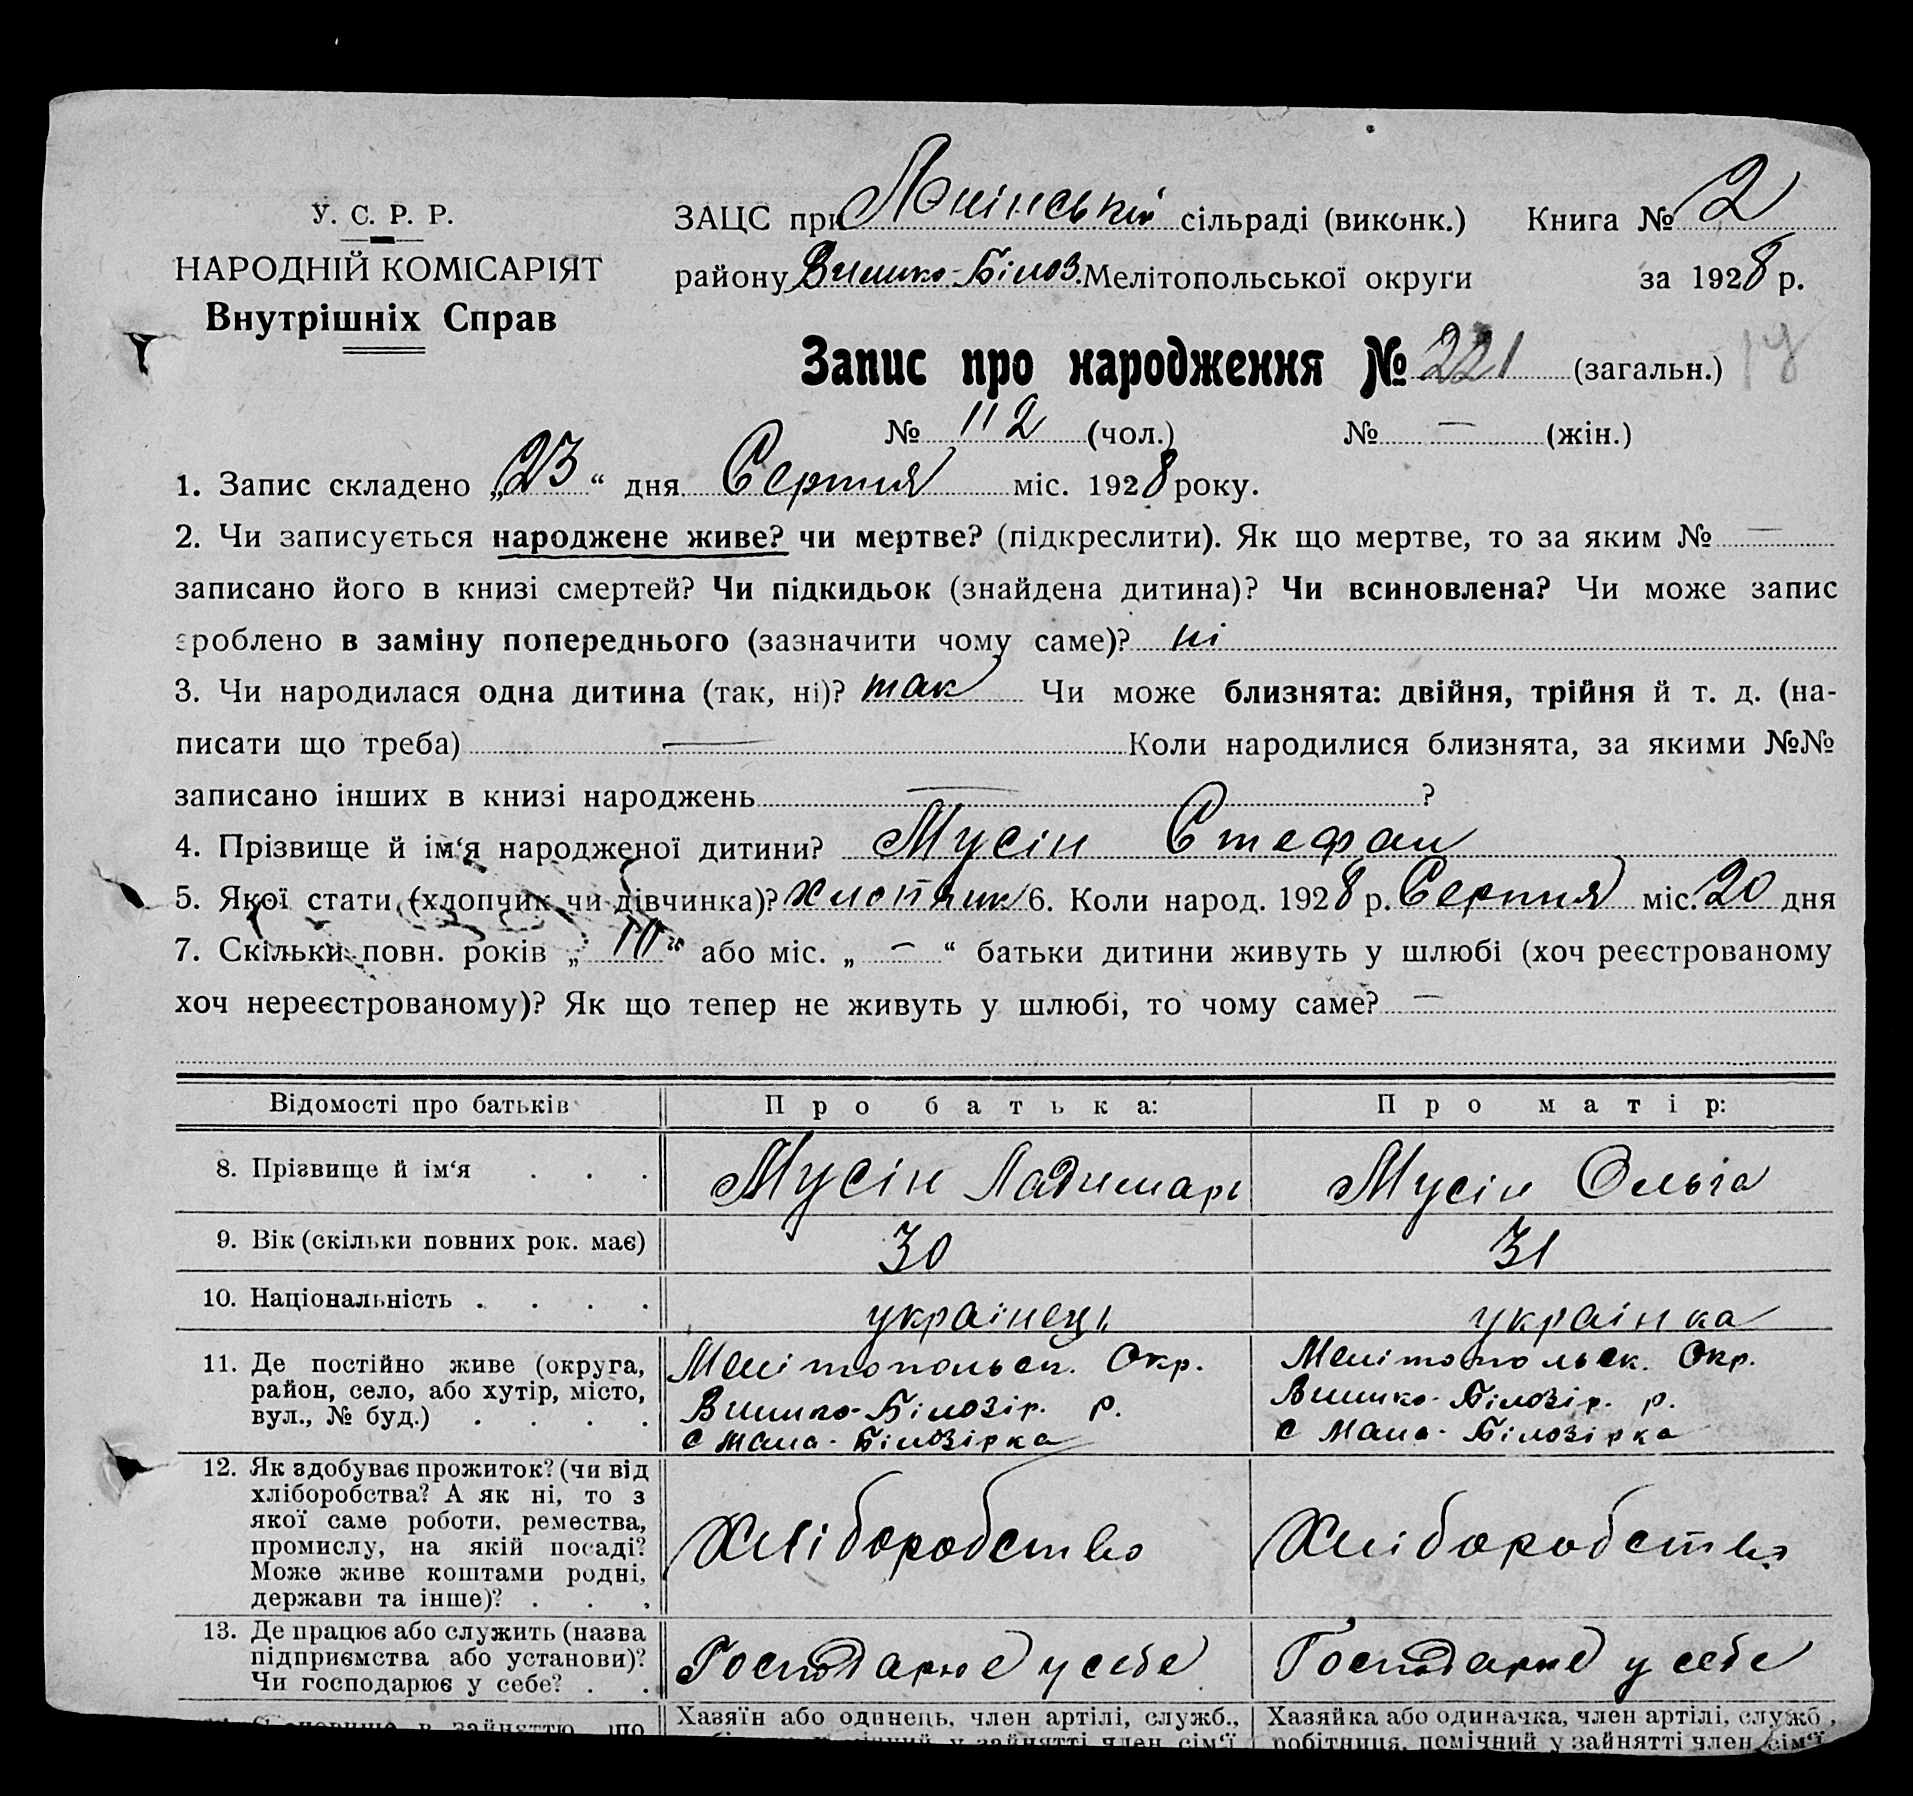 У. С. Р. Р.
НАРОДНІЙ КОМІСАРІЯТ
Внутрішніх Справ
ЗАЦС при сільраді (виконк.) Книга № 2
району Вишко-Білоз. Мелітопольської округи за 1928 р.
Запис про народження № 221 (загальн.)
№ 112 (чол.) № — (жін.)
1. Запис складено „23“ дня Серпня міс. 1928 року.
2. Чи записується народжене живе? чи мертве? (підкреслити). Як що мертве, то за яким № —
записано його в книзі смертей? Чи підкидьок (знайдена дитина)? Чи всиновлена? Чи може запис
зроблено в заміну попереднього (зазначити чому саме)? ні
3. Чи народилася одна дитина (так, ні)? так Чи може близнята: двійня, трійня й т. д. (на-
писати що треба) — Коли народилися близнята, за якими №№
записано інших в книзі народжень — ?
4. Прізвище й ім‘я народженої дитини? Мусін Стефан
5. Якої стати (хлопчик чи дівчинка)? хлопчик 6. Коли народ. 1928 р. Серпня міс. 20 дня
7. Скільки повн. років „10“ або міс. „—“ батьки дитини живуть у шлюбі (хоч реєстрованому
хоч нереєстрованому)? Як що тепер не живуть у шлюбі, то чому саме? —
Відомості про батьків Про батька: Про матір:
8. Прізвище й ім‘я . . . Мусін Ладимарь Мусін Ольга
9. Вік (скільки повних рок. має) 30 31
10. Національність . . . . українець українка
11. Де постійно живе (округа, район, село, або хутір, місто, вул., № буд.) . . . .
Мелітопольск. Окр.
Вишко-Білозір. р.
с Мала-Білозірка
Мелітопольск. Окр.
Вишко-Білозір. р.
с Мала-Білозірка
12. Як здобуває прожиток? (чи від
хліборобства? А як ні, то з
якої саме роботи, ремества,
промислу, на якій посаді?
Може живе коштами родні,
держави та інше)? . . .
Хліборобство Хліборобство
13. Де працює або служить (назва
підприємства або установи)?
Чи господарює у себе? . .
Господарює у себе Господарює у себе
Хазяїн або одинець, член артілі, служб., Хазяйка або одиначка, член артілі, служб.,
робітниця, помічний у зайнятті член сім‘ї